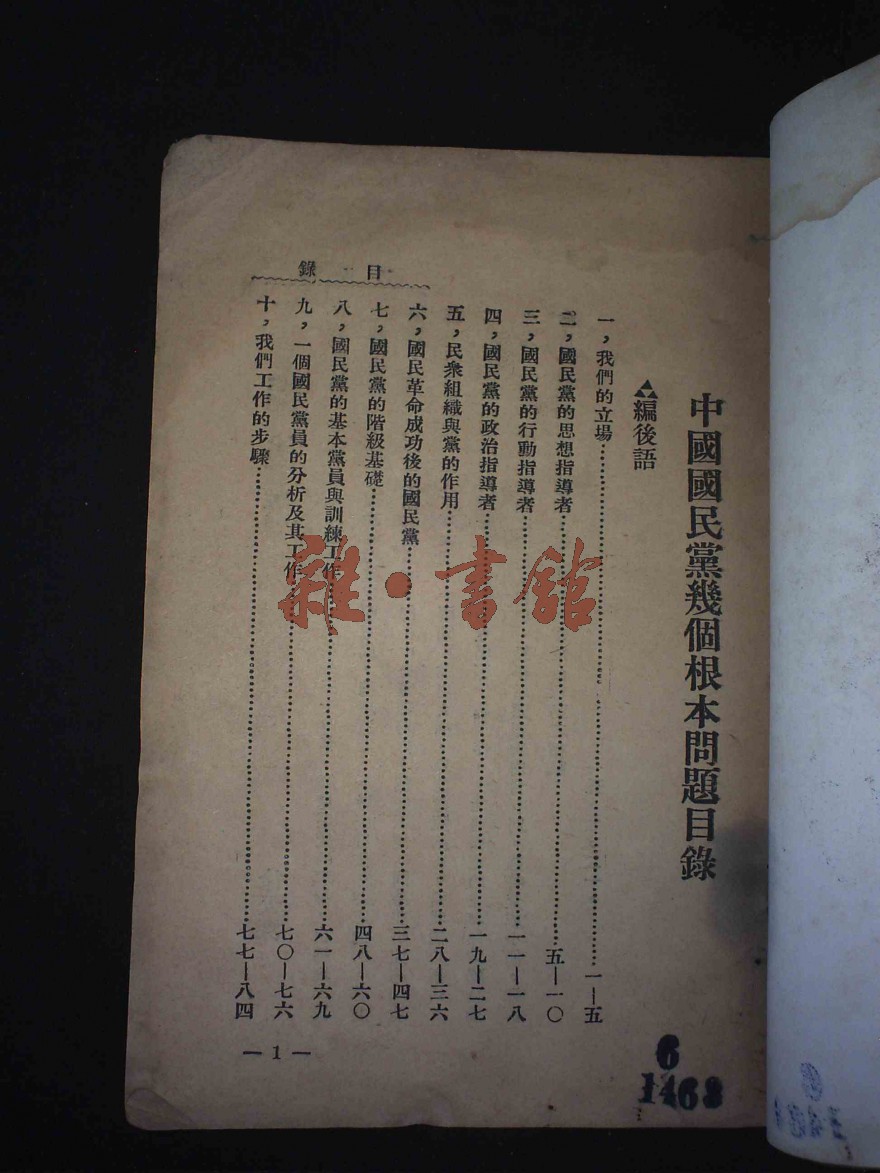 中國國民黨幾個根本問題目錄
編後語
一，我們的立場………一—五
二，國民黨的思想指導者………五—一〇
三，國民黨的行動指導者………一一—一八
四，國民黨的政治指導者………一九—二七
五，民衆組織與黨的作用………二八—三六
六，國民革命成功後的國民黨………三七—四七
七，國民黨的階級基礎………四八—六〇
八，國民黨的基本黨員與訓練工作………六一—六九
九，一個國民黨員的分析及其工作………七〇—七六
十，我們工作的步驟………七七—八四
目錄
— 1 —
雜·書館
6
1463